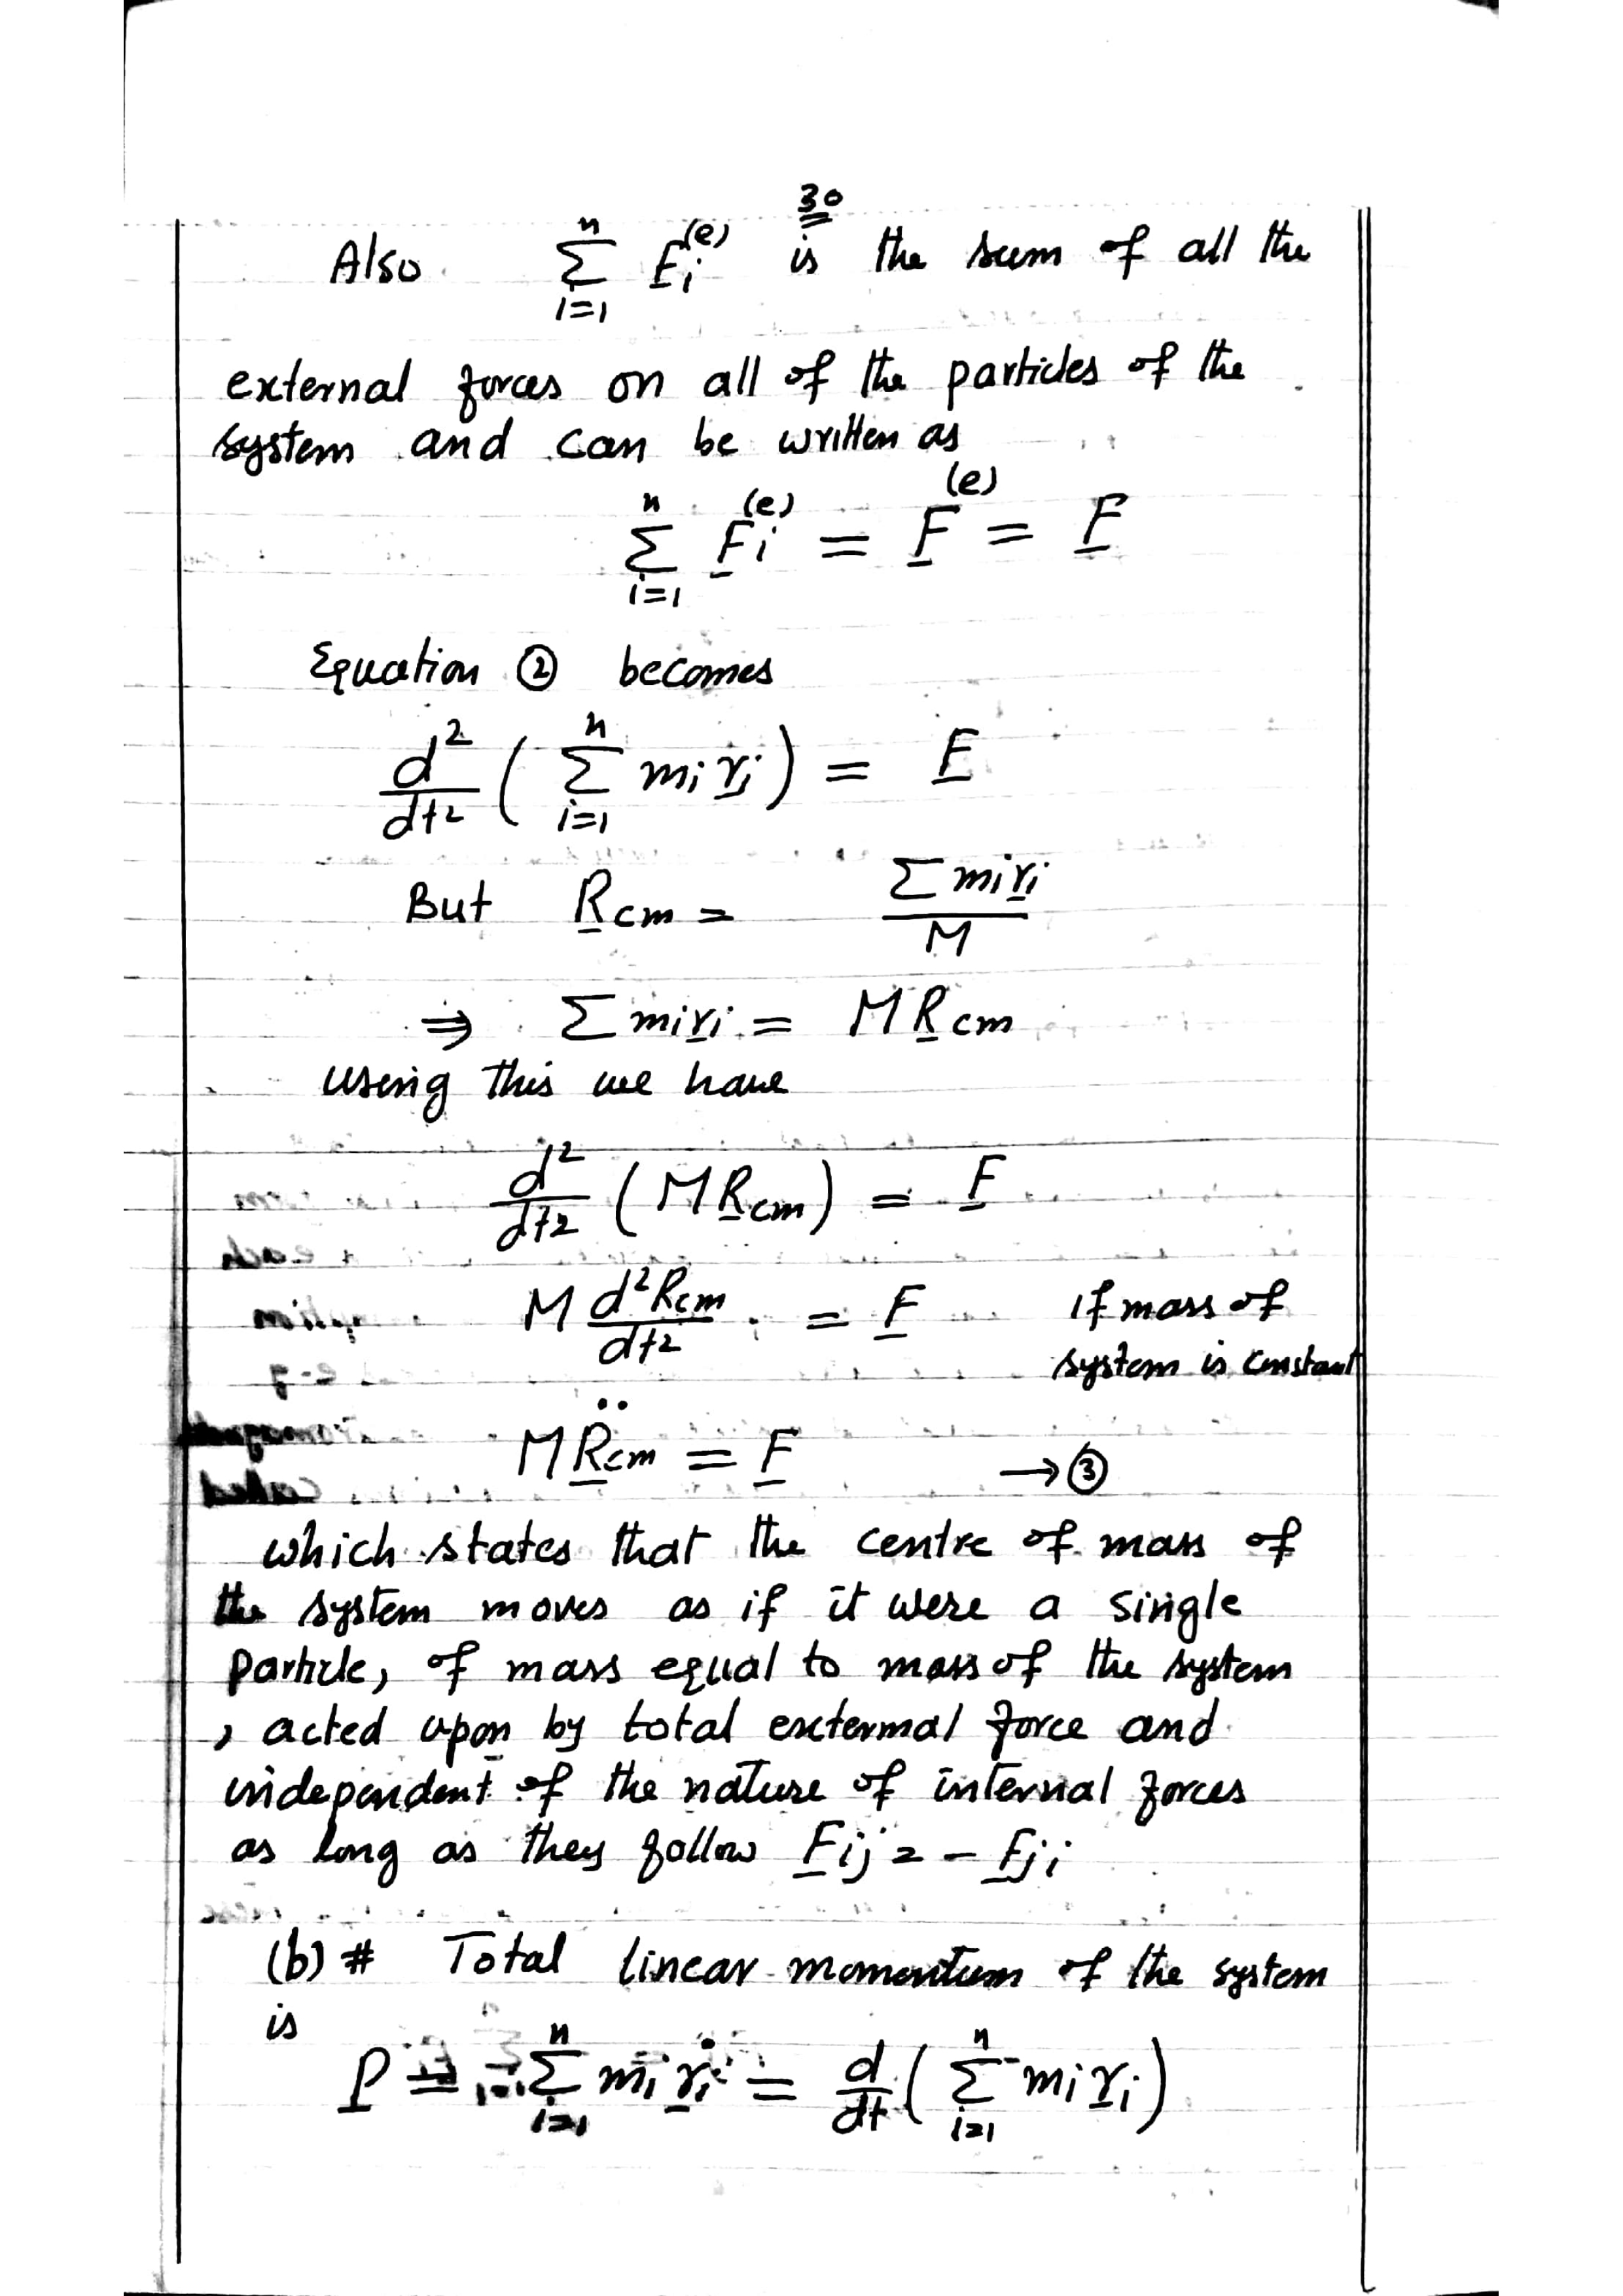 30
Also $\sum_{i=1}^{n} \underline{F}_i^{(e)}$ is the sum of all the
external forces on all of the particles of the
system and can be written as
$\sum_{i=1}^{n} \underline{F}_i^{(e)} = \underline{F}^{(e)} = \underline{F}$
Equation ② becomes
$\frac{d^2}{dt^2} \left( \sum_{i=1}^{n} m_i \underline{r}_i \right) = \underline{F}$
But $\underline{R}_{cm} = \frac{\sum m_i \underline{r}_i}{M}$
$\Rightarrow \sum m_i \underline{r}_i = M \underline{R}_{cm}$
using this we have
$\frac{d^2}{dt^2} (M \underline{R}_{cm}) = \underline{F}$
$M \frac{d^2 \underline{R}_{cm}}{dt^2} = \underline{F}$ If mass of
system is constant
$M \ddot{\underline{R}}_{cm} = \underline{F}$ → ③
which states that the centre of mass of
the system moves as if it were a single
particle, of mass equal to mass of the system
, acted upon by total external force and
independent of the nature of internal forces
as long as they follow $\underline{F}_{ij} = - \underline{F}_{ji}$
(b) # Total linear momentum of the system
is
$\underline{P} = \sum_{i=1}^{n} m_i \dot{\underline{r}}_i = \frac{d}{dt} \left( \sum_{i=1}^{n} m_i \underline{r}_i \right)$